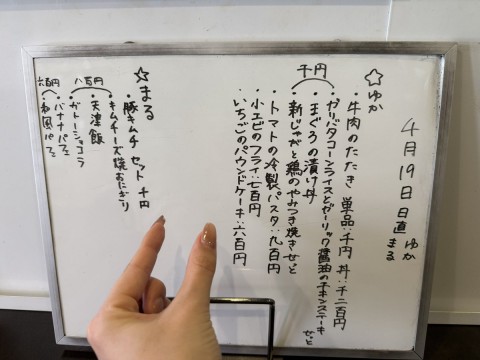 4月19日 日直 ゆか まる
☆ゆか
・牛肉のたたき 単品:千円 丼:千二百円
・ガリバタコーンライスとガーリック醤油のチキンステーキ せっと
・まぐろの漬け丼
・新じゃがと鶏のやみつき焼きせっと
千円
・トマトの冷製パスタ:九百円
・小エビのフライ:七百円
・いちごのパウンドケーキ:六百円
☆まる
・豚キムチ セット 千円
・キムチーズ焼おにぎり
・天津飯
八百円
・ガトーショコラ
・バナナパフェ
・和風パフェ
六百円